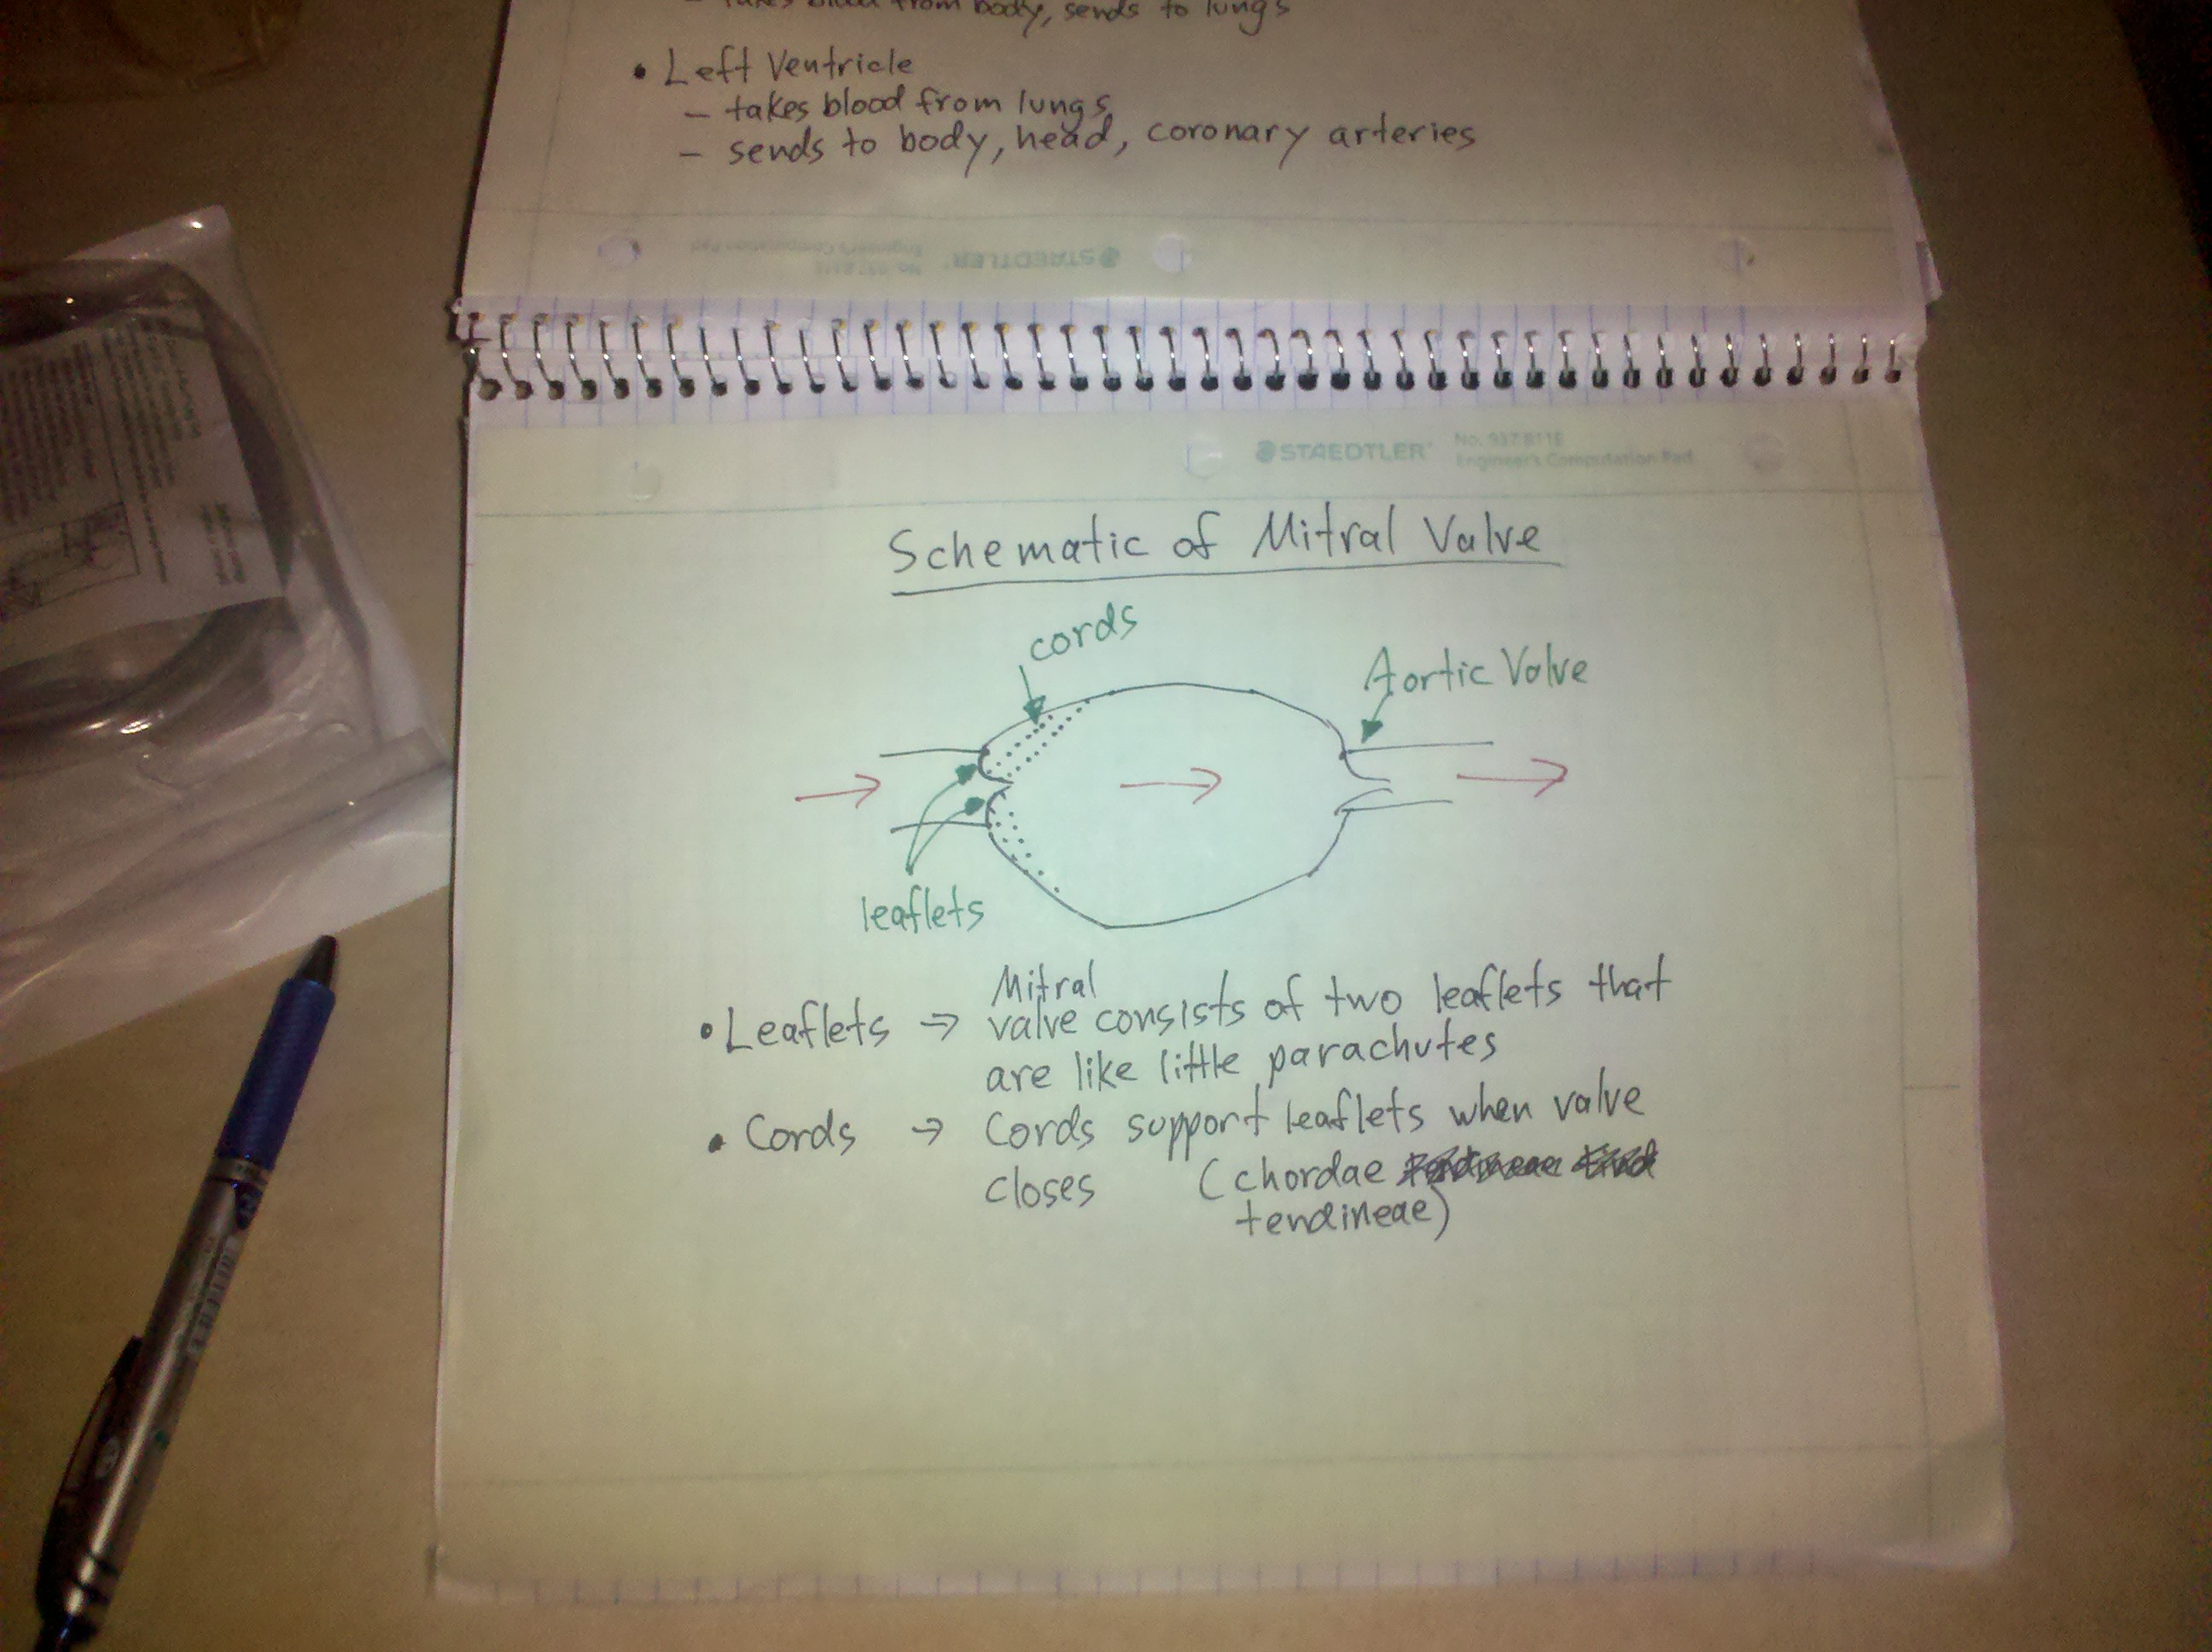 - takes blood from body, sends to lungs
• Left Ventricle
- takes blood from lungs
- sends to body, head, coronary arteries
STAEDTLER
No. 937 811E
Engineer's Computation Pad
STAEDTLER
No. 937 811E
Engineer's Computation Pad
Schematic of Mitral Valve
cords
Aortic Valve
leaflets
Mitral
• Leaflets → valve consists of two leaflets that
are like little parachutes
• Cords → Cords support leaflets when valve
closes (chordae
tendineae)